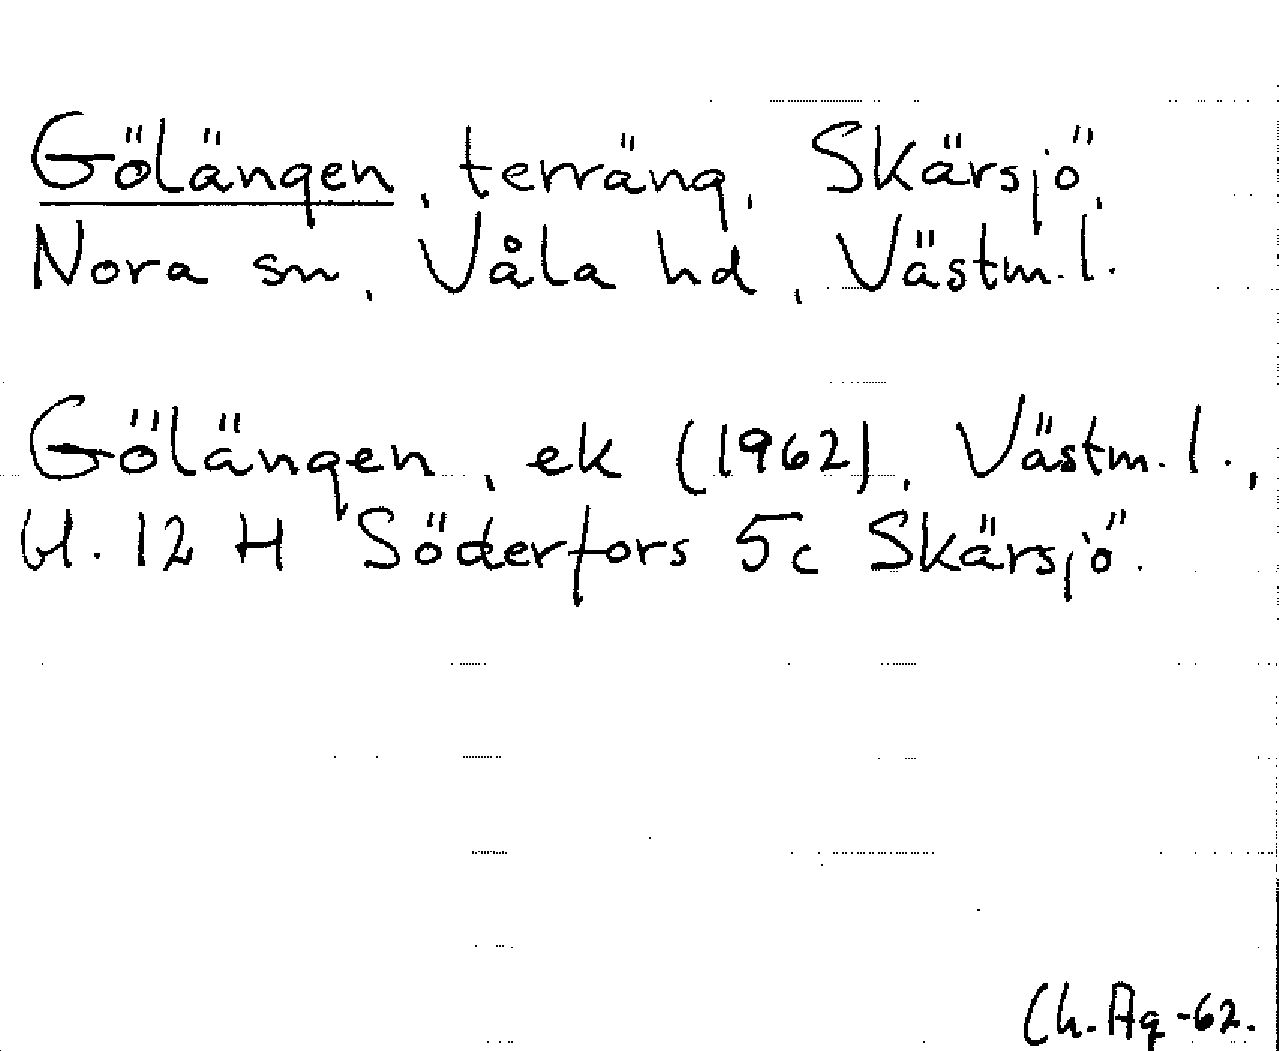 Gölängen, terräng, Skärsjö,
Nora sn, Våla hd, Västm. l.
Gölängen, ek (1962), Västm. l.,
bl. 12 H Söderfors 5c Skärsjö.
Ch. Ag -62.